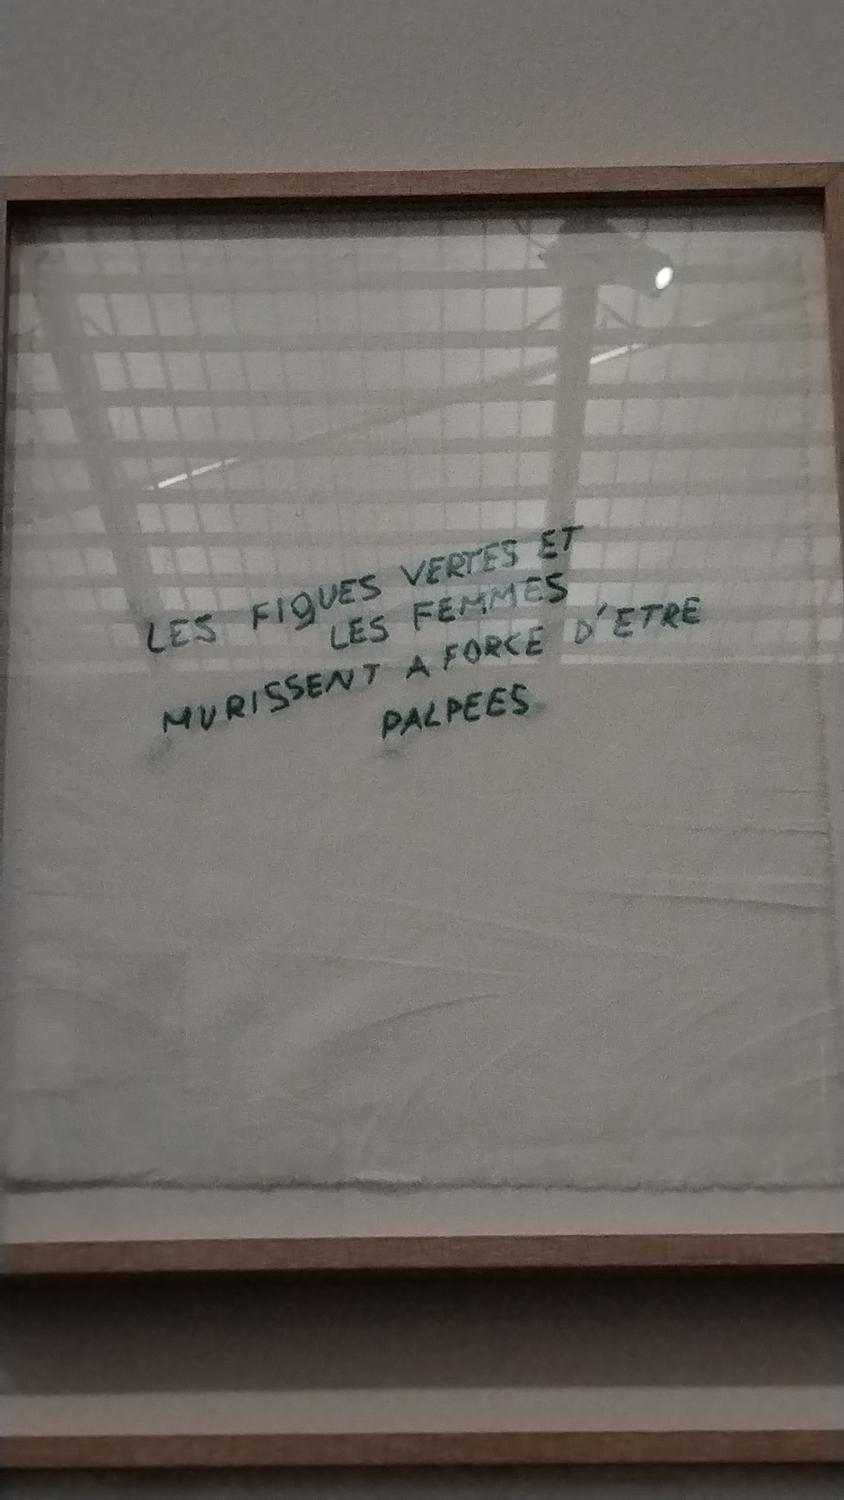 LES FIGUES VERTES ET
LES FEMMES
MURISSENT A FORCE D'ETRE
PALPEES